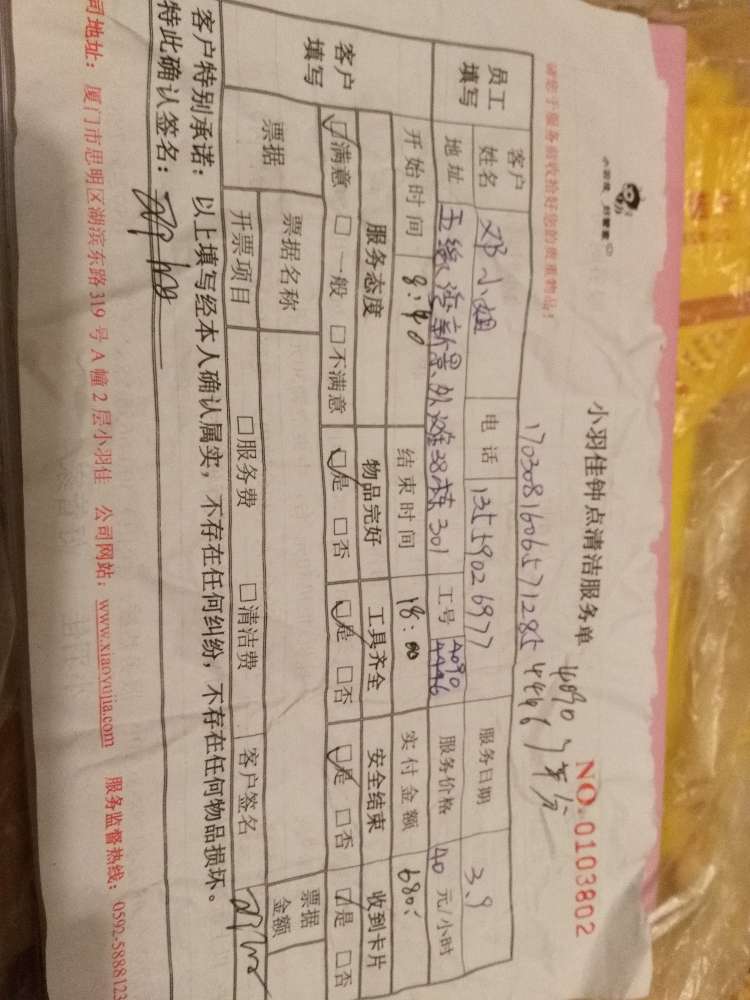 小羽佳 好管家
小羽佳钟点清洁服务单
NO. 0103802
请您于服务前收拾好您的贵重物品!
170308160657128 5
4090
4446 平分
员工填写
客户姓名 邓小姐 电话 13559026977 服务日期 3.9
地址 五缘湾新景、外滩38栋301 工号 4090 4446 服务价格 40 元/小时
客户填写
开始时间 8:40 结束时间 18:00 实付金额 680:
服务态度 物品完好 工具齐全 安全结束 收到卡片
☑满意 □一般 □不满意 ☑是 □否 ☑是 □否 ☑是 □否 ☑是 □否
票据 票据名称 票据金额
开票项目 □服务费 □清洁费 客户签名
客户特别承诺: 以上填写经本人确认属实, 不存在任何纠纷, 不存在任何物品损坏。
特此确认签名:
司地址: 厦门市思明区湖滨东路319号A幢2层小羽佳 公司网站: www.xiaoyujia.com 服务监督热线: 0592-5888123